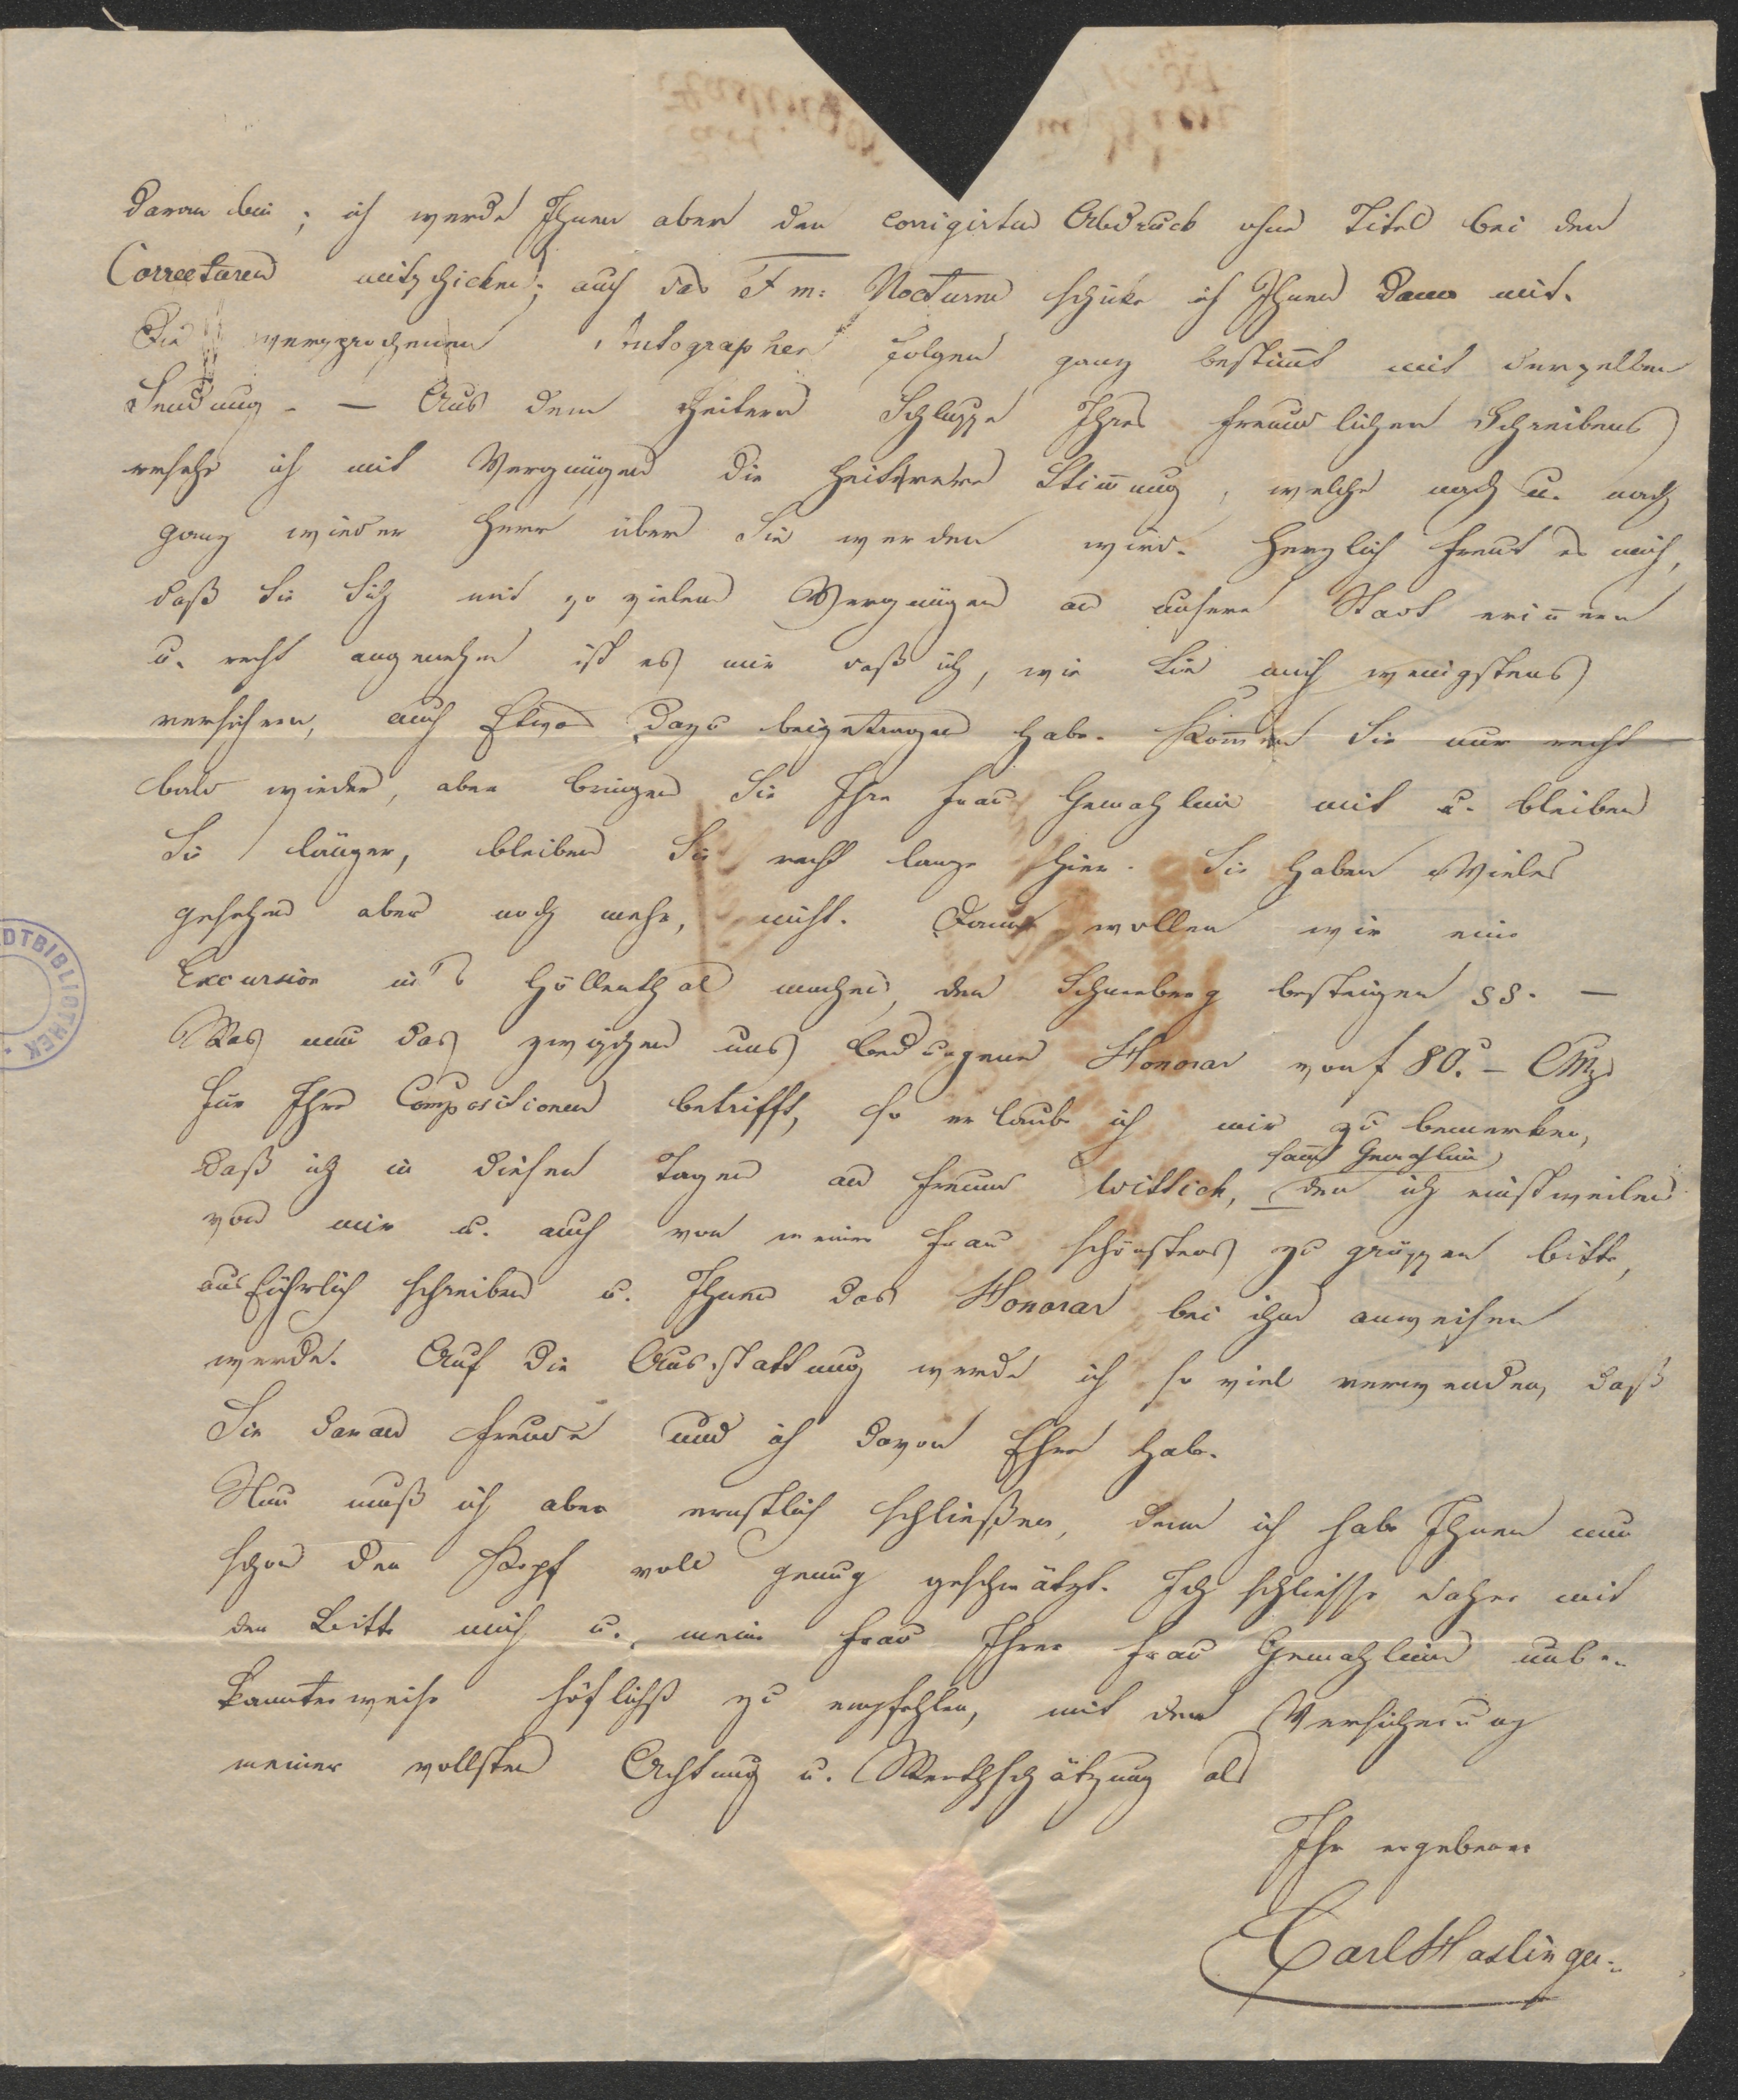 daran bin; ich werde Ihnen aber den corrigirten Abdruck ohne Titel bei den
Correcturen mitschicken; auch das F m: Nocturne schicke ich Ihnen dann mit.
Die versprochenen Autographen folgen ganz bestim̅t mit derselben
Sendung. — Aus dem heitern Schlusse Ihres freundlichen Schreibens
ersehe ich mit Vergnügen die heiterere Stim̅ung, welche nach u. nach
ganz wieder Herr über Sie werden wird. Herzlich freut es mich,
daß Sie Sich mit so vielem Vergnügen an unsere Stadt erin̅ern
u. recht angenehm ist es mir daß ich, wie Sie mich wenigstens
versichern, auch Etwas dazu beigetragen habe. Kom̅en Sie nur recht
bald wieder, aber bringen Sie Ihre Frau Gemahlin mit u. bleiben
Sie länger, bleiben Sie recht lange hier. Sie haben Vieles
gesehen aber noch mehr, nicht. Dann wollen wir eine
Excursion in's Höllenthal machen, den Schneeberg besteigen ss. —
Was nun das zwischen uns bedungene Honorar von f 80.— CMze
für Ihre Compositionen betrifft, so erlaube ich mir zu bemerken,
daß ich in diesen Tagen an Freund Wittich, den ich einstweilen
sam̅t Gemahlin
von mir u. auch von meiner Frau schönstens zu grüssen bitte,
ausführlich schreiben u. Ihnen das Honorar bei ihm anweisen
werde. Auf die Ausstattung werde ich so viel verwenden, daß
Sie daran Freude und ich davon Ehre habe.
Nun muß ich aber ernstlich schließen, denn ich habe Ihnen nun
schon den Kopf voll genug geschwätzt. Ich schliesse daher mit
der Bitte mich u. meine Frau Ihrer Frau Gemahlin unbe-
kannterweise höflichst zu empfehlen, mit der Versicherung
meiner vollsten Achtung u. Werthschätzung als
Ihr ergebener
Carl Haslinger.
DTBIBLIOTHEK